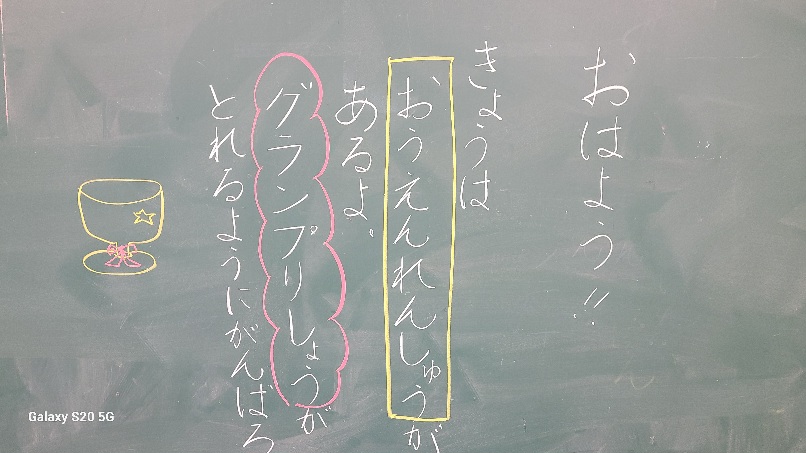 おはよう!!
きょうは
おうえんれんしゅうが
あるよ。
グランプリしょうが
とれるようにがんばろ
Galaxy S20 5G